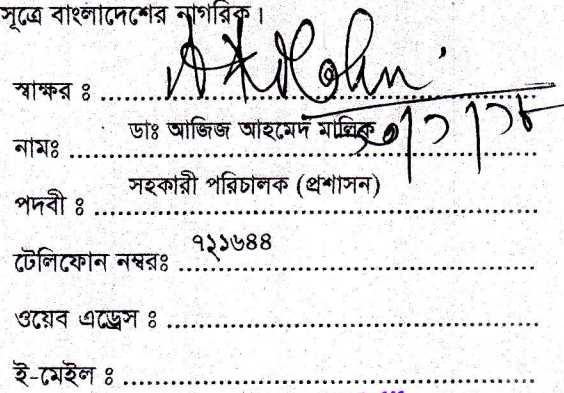 সূত্রে বাংলাদেশের নাগরিক।
স্বাক্ষর ঃ
নামঃ ডাঃ আজিজ আহমেদ মালিক
পদবী ঃ সহকারী পরিচালক (প্রশাসন)
টেলিফোন নম্বরঃ ৭২১৬৪৪
ওয়েব এড্রেস ঃ
ই-মেইল ঃ